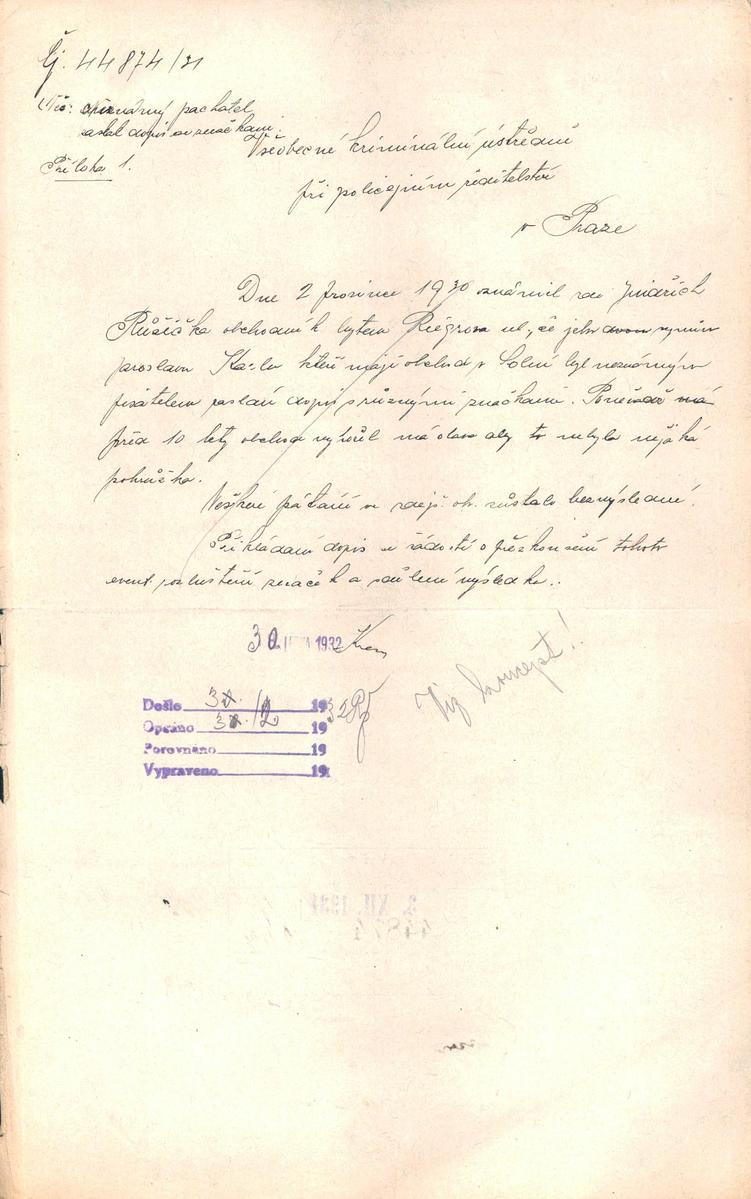 Čj. 44874/31
Věc: neznámý pachatel
zaslal dopis se značkami.
Příloha 1.
Všeobecné kriminální ústředně
při policejním ředitelství
v Praze
Dne 2 prosince 1930 oznámil zde Jindřich
Růžička obchodník bytem Riegrova ul., že jeho synům
Jaroslavu Karlu kteří mají obchod v Solní byl neznámým
pisatelem zaslán dopis s různými značkami. Poněvadž má
před 10 lety obchod vyhořel má obavu aby to nebyla nějaká
pohrůžka.
Veškeré pátrání ve zdejš. ob. zůstalo bezvýsledné.
Přikládám dopis se žádostí o přezkoušení tohoto
event. rozluštění značek a sdělení výsledku.
30 1932
Došlo 1932
Opsáno 19
Porovnáno 19
Vypraveno 19
Viz koncept!
3. XII. 1931
44874